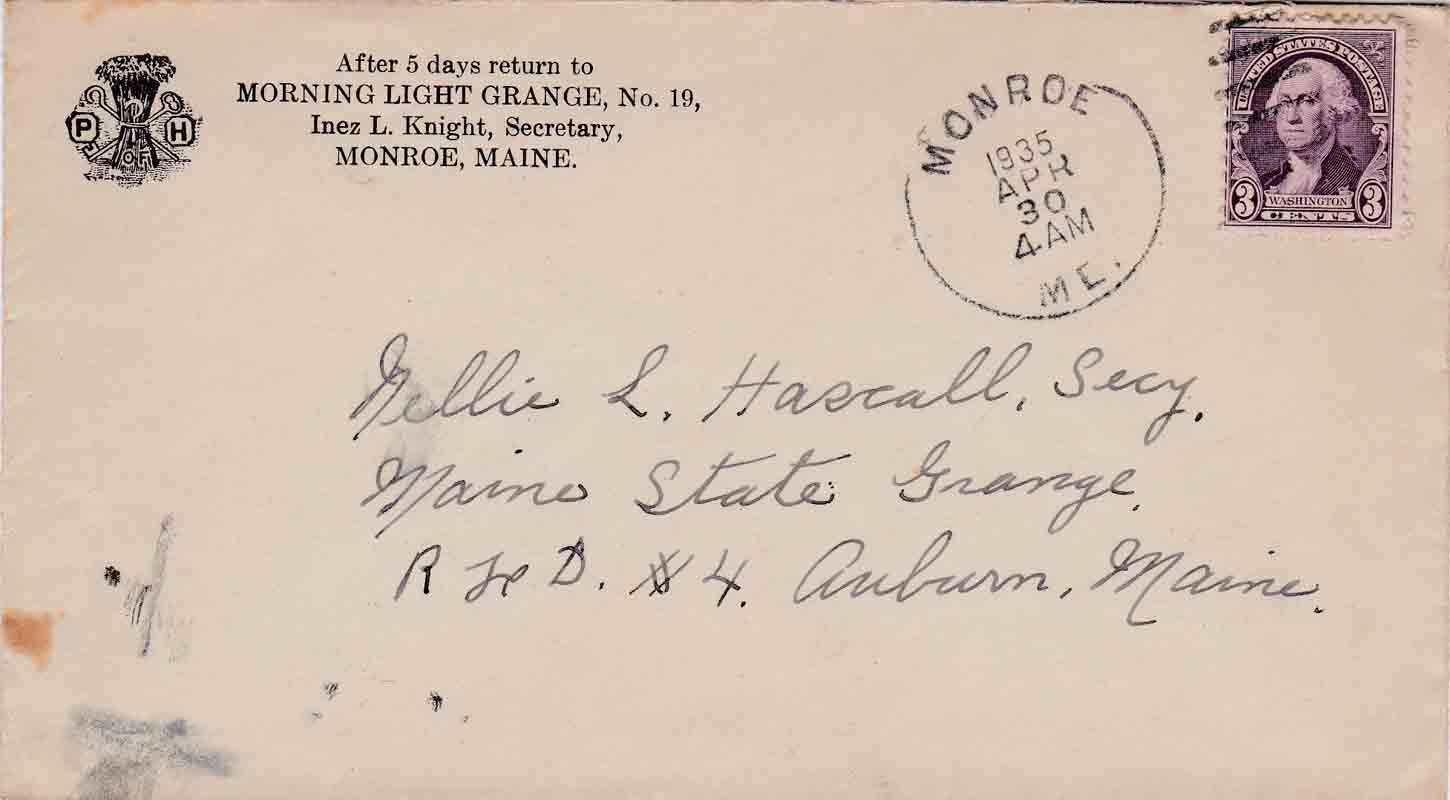 After 5 days return to
MORNING LIGHT GRANGE, No. 19,
Inez L. Knight, Secretary,
MONROE, MAINE.
P OF H
MONROE
1935
APR
30
4 AM
ME.
UNITED STATES POSTAGE
3 WASHINGTON 3
CENTS
Nellie L. Hascall, Secy.
Maine State Grange.
R F D. # 4. Auburn, Maine.